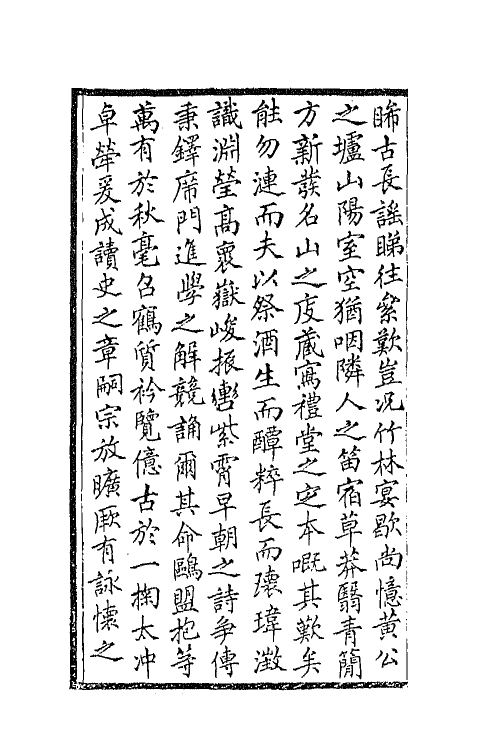 睎古長謡睇往絫歎豈况竹林宴歇尚憶黄公
之壚山陽室空猶咽隣人之笛宿草莽翳青簡
方新發名山之庋藏寫禮堂之定本嘅其歎矣
能勿漣而夫以祭酒生而醰粹長而瓌瑋澂
識淵瑩高裏嶽峻振轡紫霄早朝之詩争傳
秉鐸席門進學之解競誦爾其命鷗盟抱等
萬有於秋毫名鶴質衿覽億古於一掬太冲
卓犖爰成讀史之章嗣宗放曠厥有詠懷之